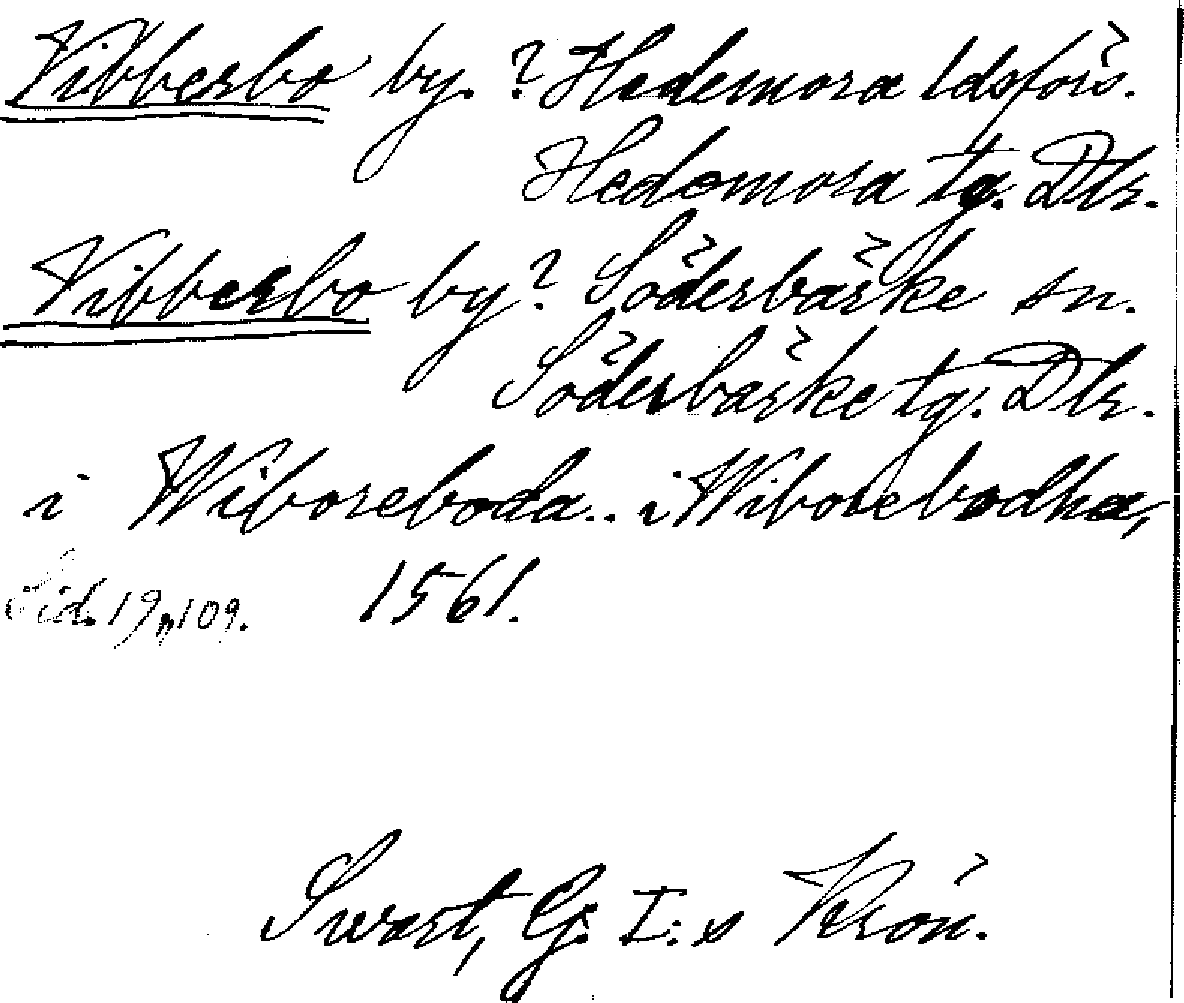 Vibberbo by. ? Hedemora ldsförs.
Hedemora tg. Dlr.
Vibberbo by? Söderbärke sn.
Söderbärke tg. Dlr.
i Wiboreboda.. i Wiborebodha,
Sid. 19, 109. 1561.
Swart, G. I:s Krön.